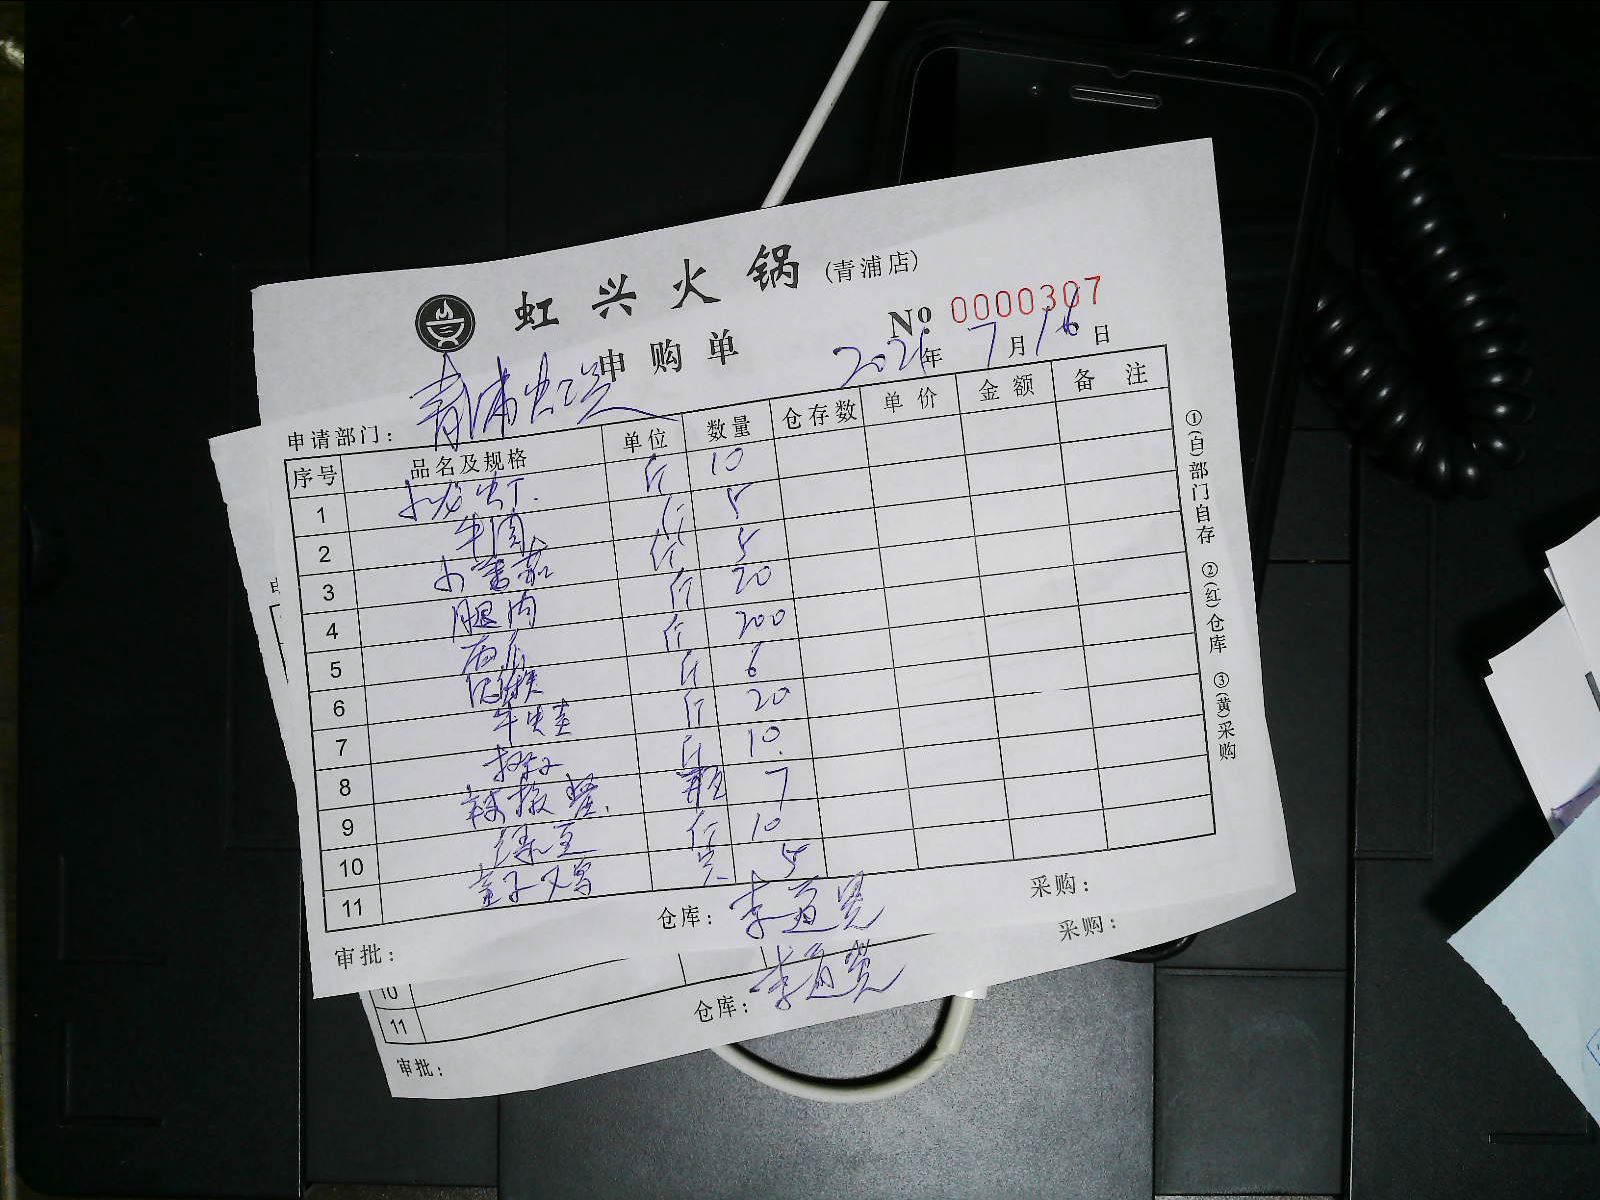 虹兴火锅(青浦店)
申购单
№ 0000307
2021年7月16日
申请部门：青浦虹兴
序号 品名及规格 单位 数量 仓存数 单价 金额 备注
1 斤 10
2 牛肉 斤 5
3 小番茄 斤 5
4 腿肉 斤 20
5 斤 200
6 斤 6
7 斤 20
8 斤 10
9 辣椒酱 7
10 绿豆 斤 10
11 童子鸡 只 5
审批： 仓库：李 采购：
①(白)部门自存 ②(红)仓库 ③(黄)采购
10
11
审批： 仓库：李 采购：